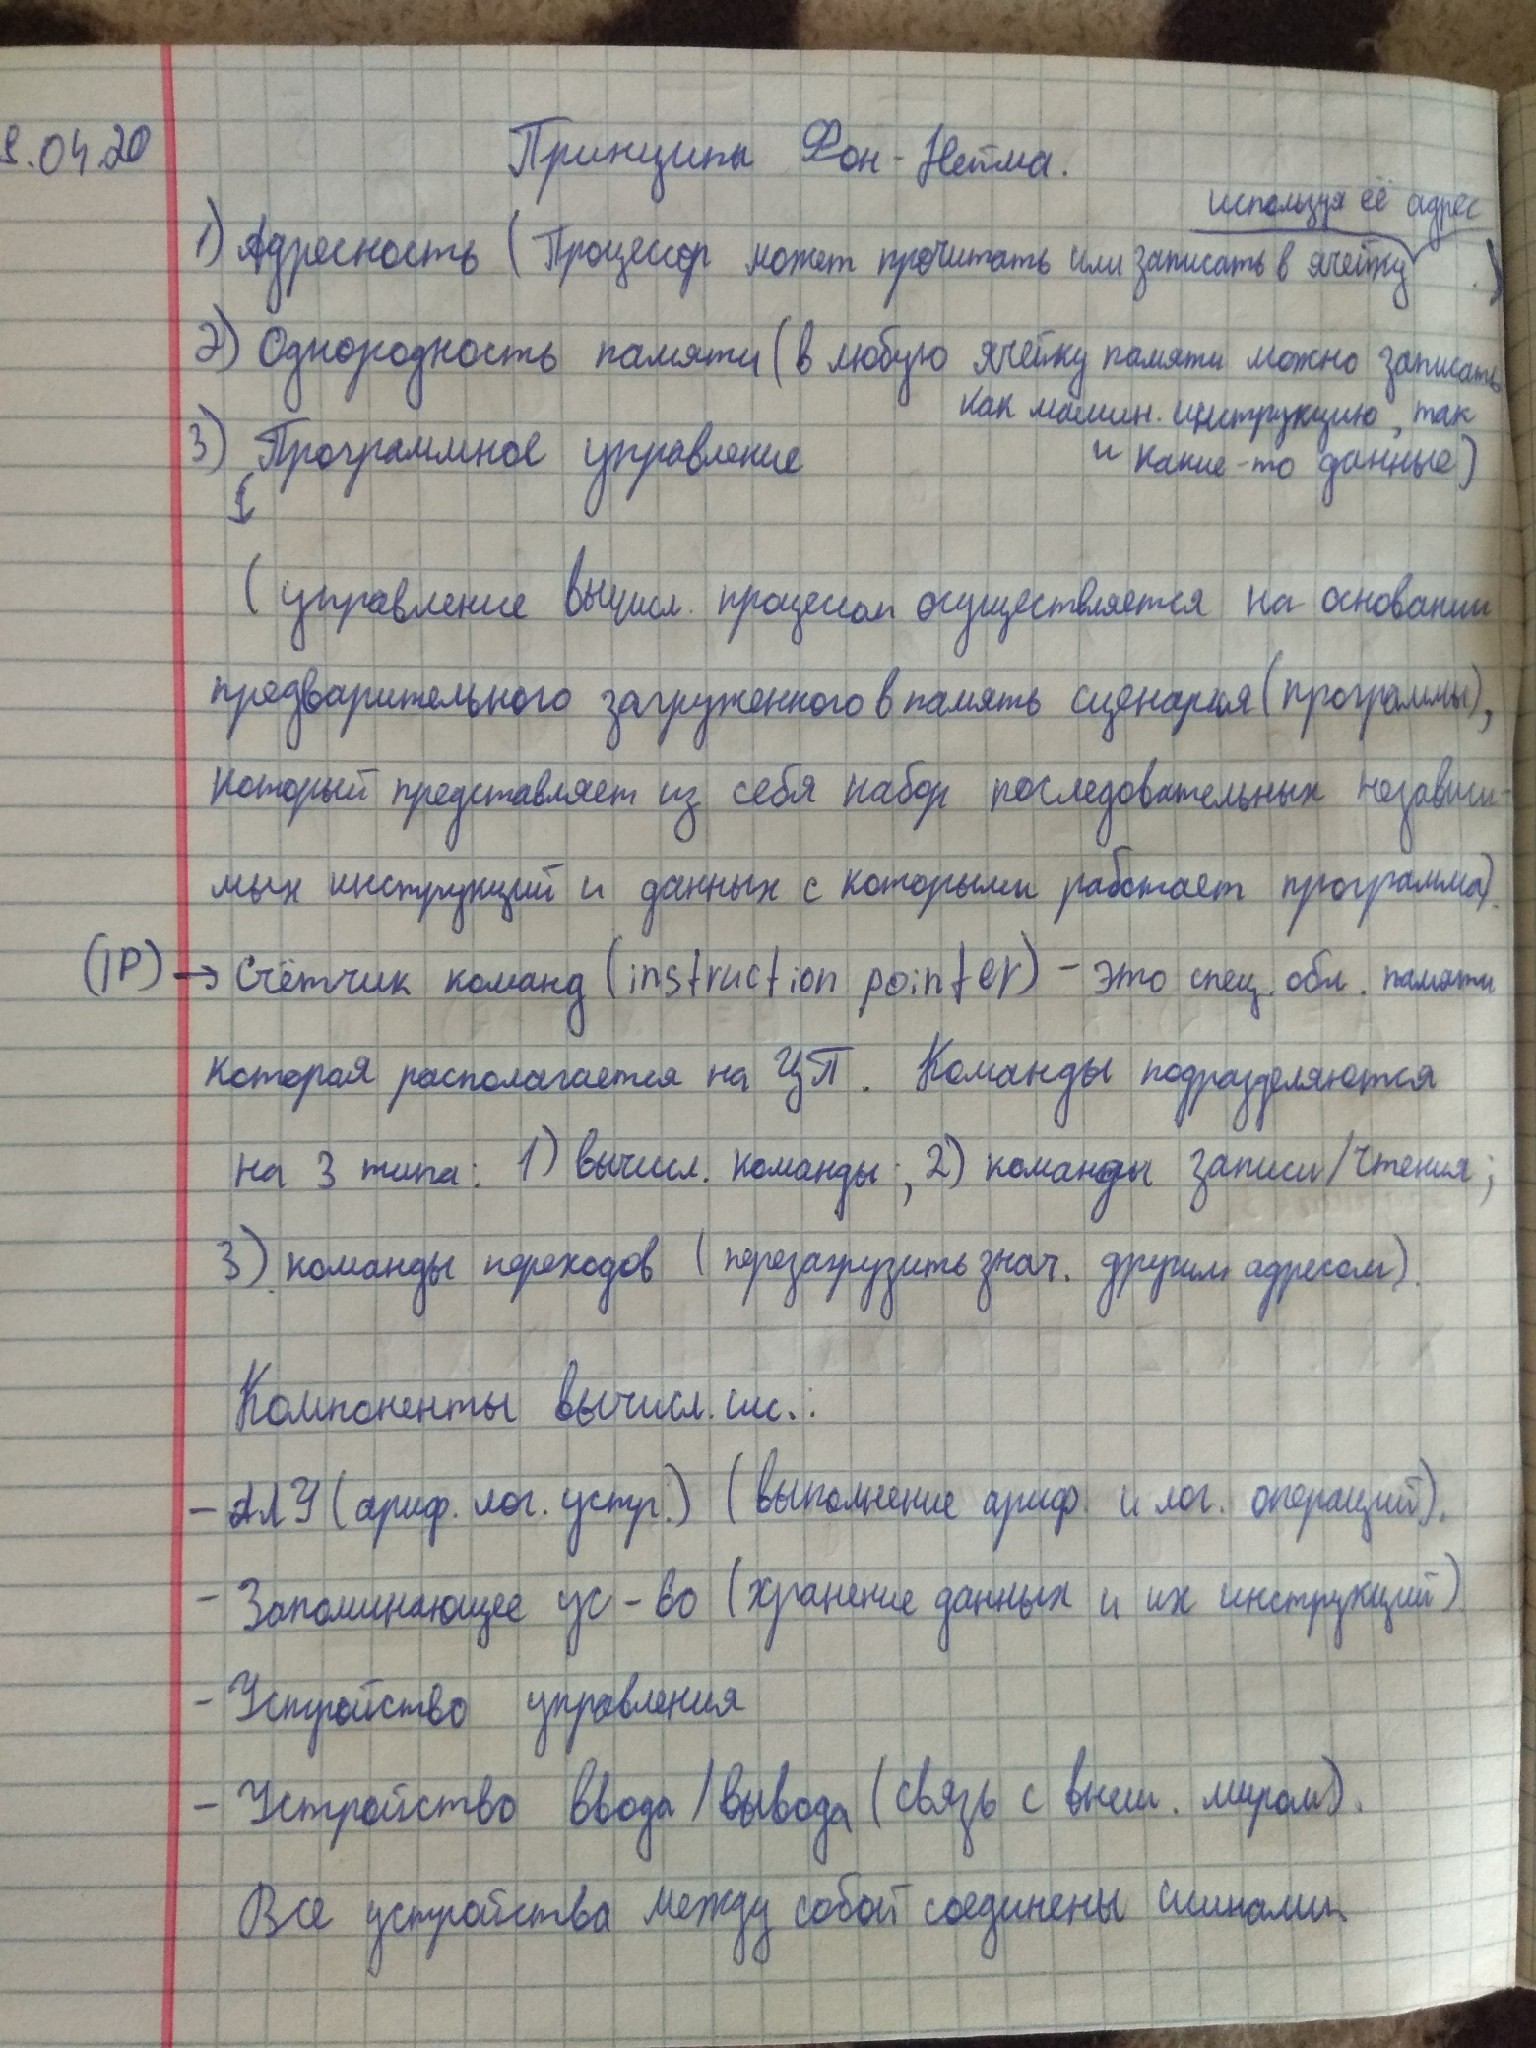 9.04.20
Принципы Фон-Неймa.
используя её адрес
1) Адресность (Процессор может прочитать или записать в ячейку .)
2) Однородность памяти (в любую ячейку памяти можно записать
как машин. инструкцию, так
3) Программное управление
и какие-то данные)
(управление вычисл. процессом осуществляется на основании
предварительного загруженного в память сценария (программы),
который представляет из себя набор последовательных независи-
мых инструкций и данных с которыми работает программа).
(IP) → Счётчик команд (instruction pointer) - это спец. обл. памяти
которая располагается на ЦП. Команды подразделяются
на 3 типа: 1) вычисл. команды; 2) команды записи/чтения;
3) команды переходов (перезагрузить знач. другим адресом).
Компоненты вычисл. сис.:
- АЛУ (ариф. лог. устр.) (выполнение ариф. и лог. операций).
- Запоминающее ус-во (хранение данных и их инструкций)
- Устройство управления
- Устройство ввода/вывода (связь с внеш. миром).
Все устройства между собой соединены шинами